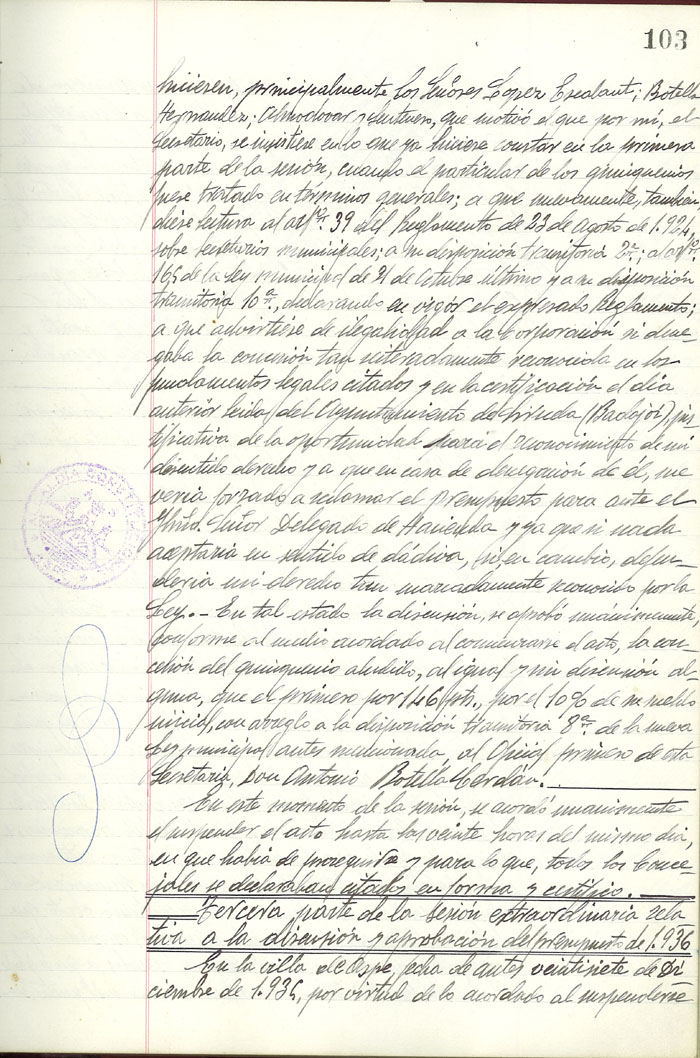 103
hicieren, principalmente los Señores Lopez Escalant; Botella
Hernandez; Almodovar y Santivero, que motivó el que por mi, el
Secretario, se insistiese en lo que ya hiciera constar en la primera
parte de la sesión, cuando el particular de los quinquenios
fuese tratado en términos generales; a que nuevamente, tambien,
diese lectura al artº. 39 del Reglamento de 23 de Agosto de 1.924,
sobre Secretarios municipales; a su disposición transitoria 2ª; al artº.
165 de la Ley municipal de 31 de Octubre último y a su disposición
transitoria 10ª, declarando en vigor el expresado Reglamento;
a que advirtiese de ilegalidad a la Corporación si dene-
gaba la concesión tan reiteradamente reconocida en los
fundamentos legales citados y en la certificación el dia
anterior leida, del Ayuntamiento de (Badajoz), jus-
tificativa de la oportunidad para el reconocimiento de mi
discutido derecho y a que en caso de denegación de él, me
veria forzado a reclamar el Presupuesto para ante el
Iltmo. Señor Delegado de Hacienda y ya que si nada
aceptaria en sentido de dádiva, si, en cambio, defen-
deria mi derecho tan marcadamente reconocido por la
Ley.- En tal estado la discusión, se aprobó unánimemente,
conforme al medio acordado al comenzarse el acto, la con-
cesión del quinquenio aludido, al igual y sin discusión al-
guna, que el primero por 146 pts., por el 10% de su sueldo
inicial, con arreglo a la disposición transitoria 8ª. de la nueva
Ley municipal antes mencionada, al Oficial primero de esta
Secretaria, Don Antonio Botella Cerdán.
En este momento de la sesión, se acordó unánimemente
el suspender el acto hasta las veinte horas del mismo dia,
en que habia de proseguirse y para lo que, todos los Conce-
jales se declaraban citados en forma y certifico.
Tercera parte de la sesión extraordinaria rela-
tiva a la discusión y aprobación del presupuesto de 1.936
En la villa de Aspe, fecha de antes veintisiete de Di-
ciembre de 1.935, por virtud de lo acordado al suspenderse